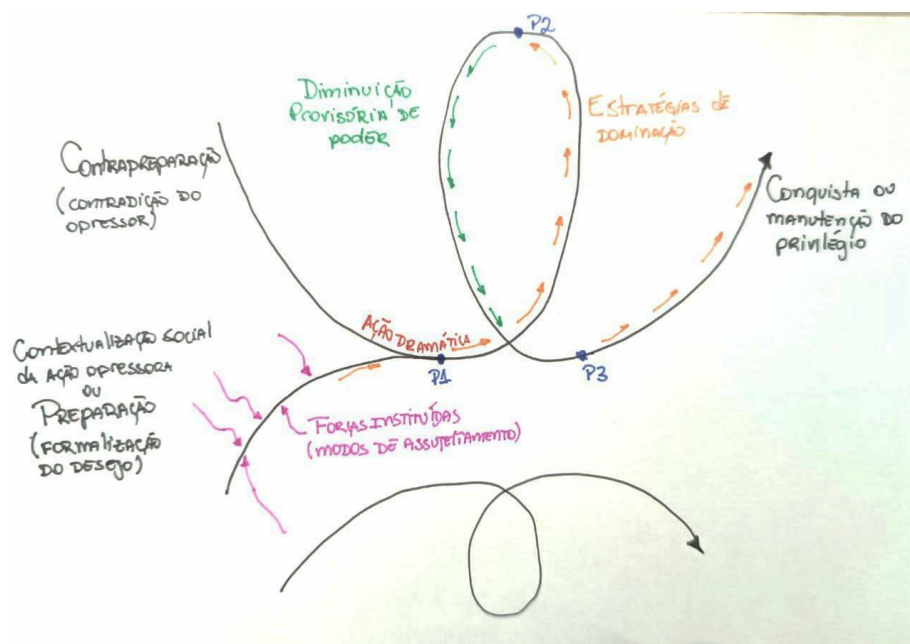 P2
Diminuição
Provisória de
poder
Estratégias de
dominação
Contrapreparação
(contradição do
opressor)
Conquista ou
manutenção do
privilégio
Ação Dramática
P1
P3
Contextualização social
da ação opressora
ou
Preparação
(formalização
do desejo)
Forças instituídas
(modos de assujeitamento)